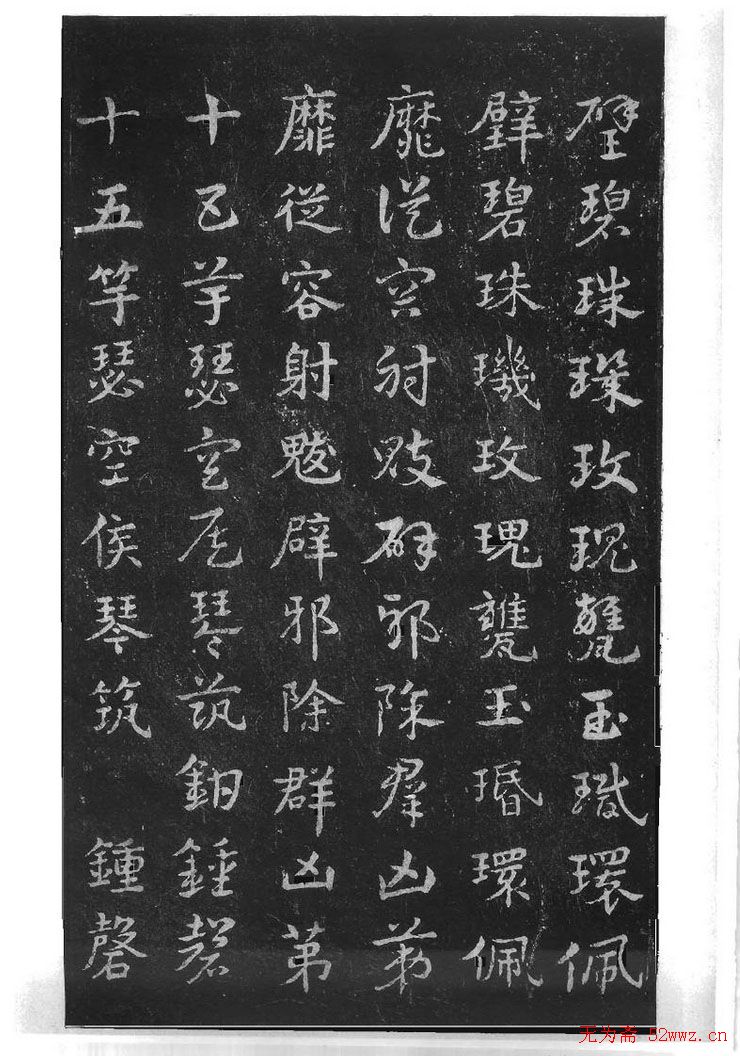 璧碧珠璣玫瑰甕玉環佩
璧碧珠璣玫瑰甕玉瑉環佩
靡從容射魃辟邪除群凶第
靡從容射魃辟邪除群凶第
十五竽瑟空侯琴筑鍾磬
十五竽瑟空侯琴筑 鍾磬
无为斋 52wwz.cn